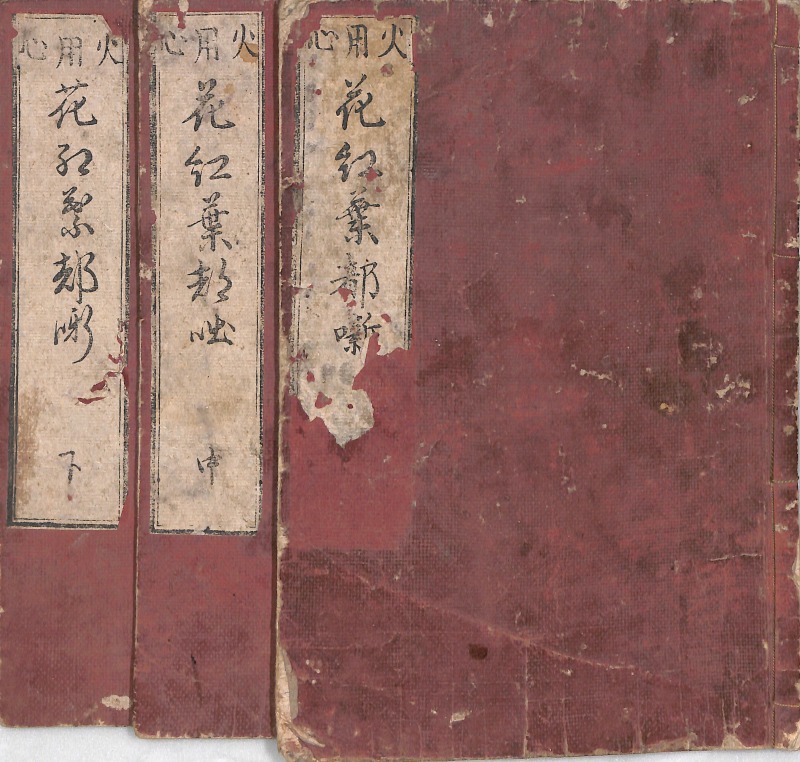 火用心
花紅葉都噺
火用心
花紅葉都咄
中
火用心
花紅葉都噺
下